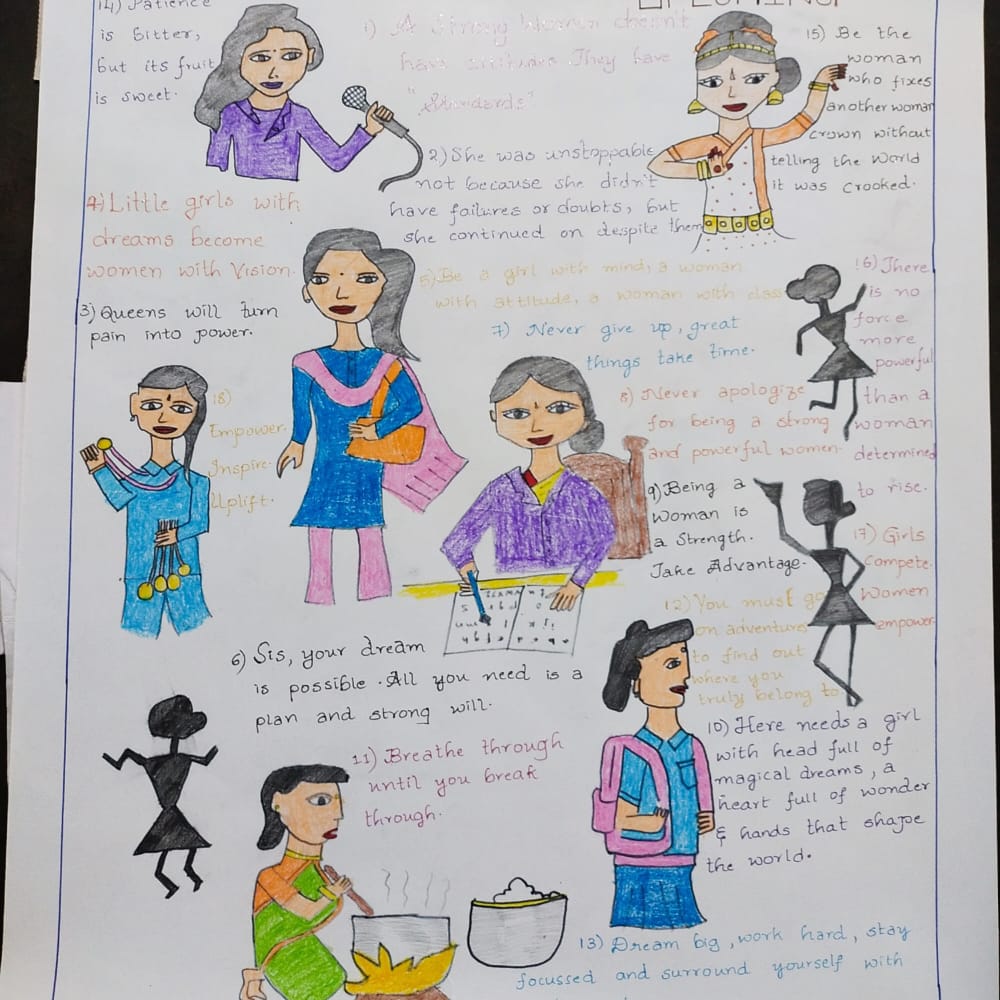 14) Patience
is bitter,
but its fruit
is sweet.
1) A Strong Women doesn't
have attitudes They have
"Standards"
15) Be the
woman
who fixes
another woman
crown without
telling the world
it was crooked.
2) She was unstoppable
not because she didn't
have failures or doubts, but
she continued on despite them
4) Little girls with
dreams become
women with Vision.
3) Queens will turn
pain into power.
5) Be a girl with mind, a woman
with attitude, a woman with class
7) Never give up, great
things take time.
16) There
is no
force
more
powerful
than a
woman
determined
to rise.
18)
Empower.
Inspire.
Uplift.
8) Never apologize
for being a strong
and powerful women.
9) Being a
Woman is
a Strength.
Take Advantage.
17) Girls
Compete.
Women
empower
12) You must go
on adventures
to find out
where you
truly belong to
6) Sis, your dream
is possible. All you need is a
plan and strong will.
10) Here needs a girl
with head full of
magical dreams, a
heart full of wonder
& hands that shape
the world.
11) Breathe through
until you break
through.
13) Dream big, work hard, stay
focussed and surround yourself with